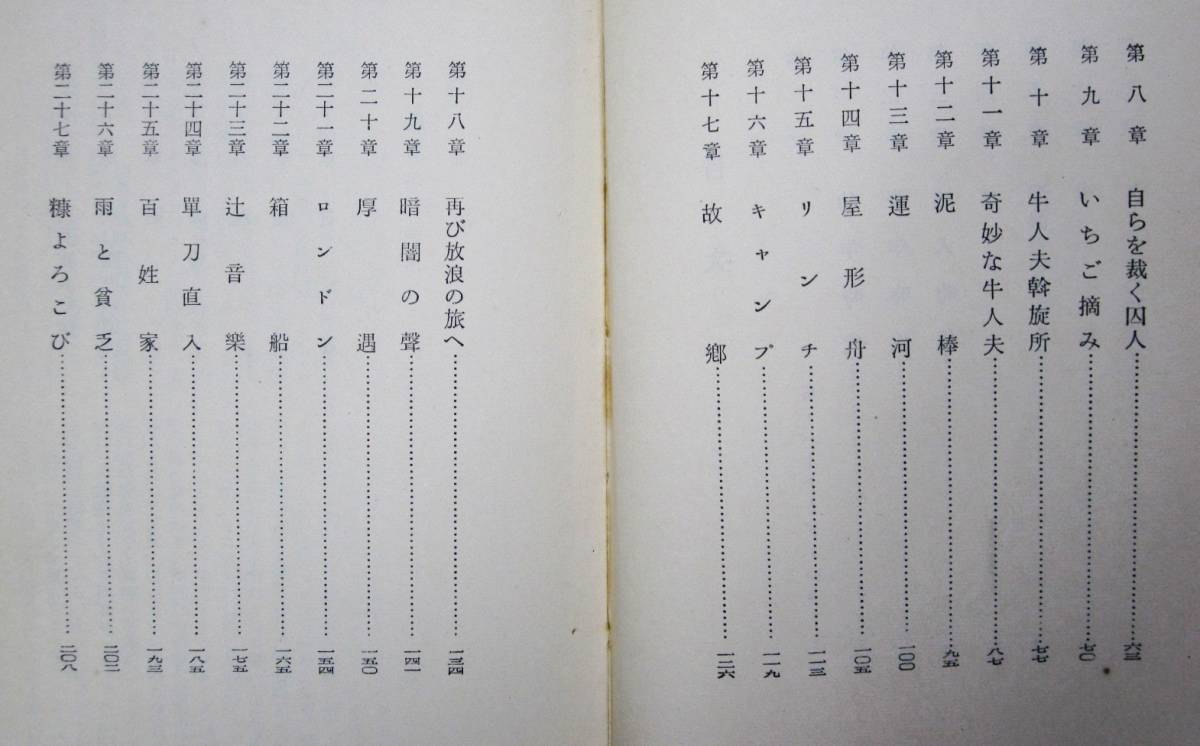 第八章 自らを裁く囚人…………六三
第九章 いちご摘み…………七〇
第十章 牛人夫斡旋所…………七七
第十一章 奇妙な牛人夫…………八七
第十二章 泥棒…………九五
第十三章 運河…………一〇〇
第十四章 屋形舟…………一〇五
第十五章 リンチ…………一一三
第十六章 キャンプ…………一一九
第十七章 故鄉…………一二六
第十八章 再び放浪の旅へ…………一三四
第十九章 暗闇の聲…………一四一
第二十章 厚遇…………一五〇
第二十一章 ロンドン…………一五四
第二十二章 箱船…………一六五
第二十三章 辻音樂…………一七五
第二十四章 單刀直入…………一八五
第二十五章 百姓家…………一九三
第二十六章 雨と貧乏…………二〇二
第二十七章 糠よろこび…………二〇八